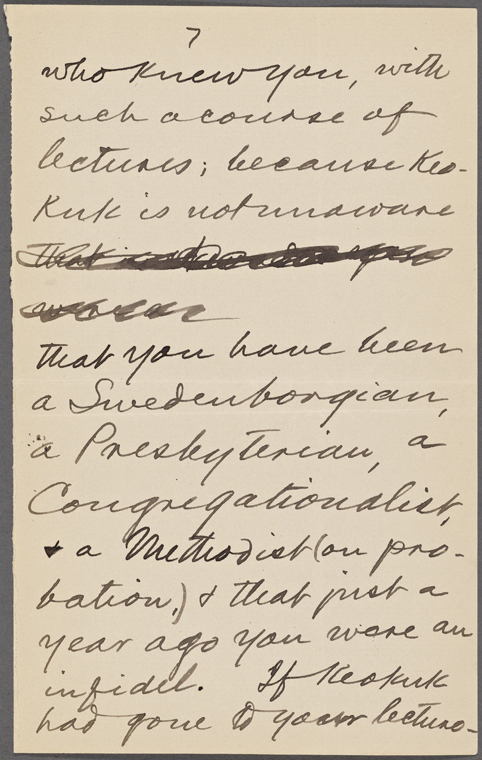 7
who knew you, with
such a course of
lectures; because Keo-
kuk is not unaware
that
that you have been
a Swedenborgian,
a Presbyterian, a
Congregationalist,
& a Methodist (on pro-
bation,) & that just a
year ago you were an
infidel. If Keokuk
had gone to your lecture-